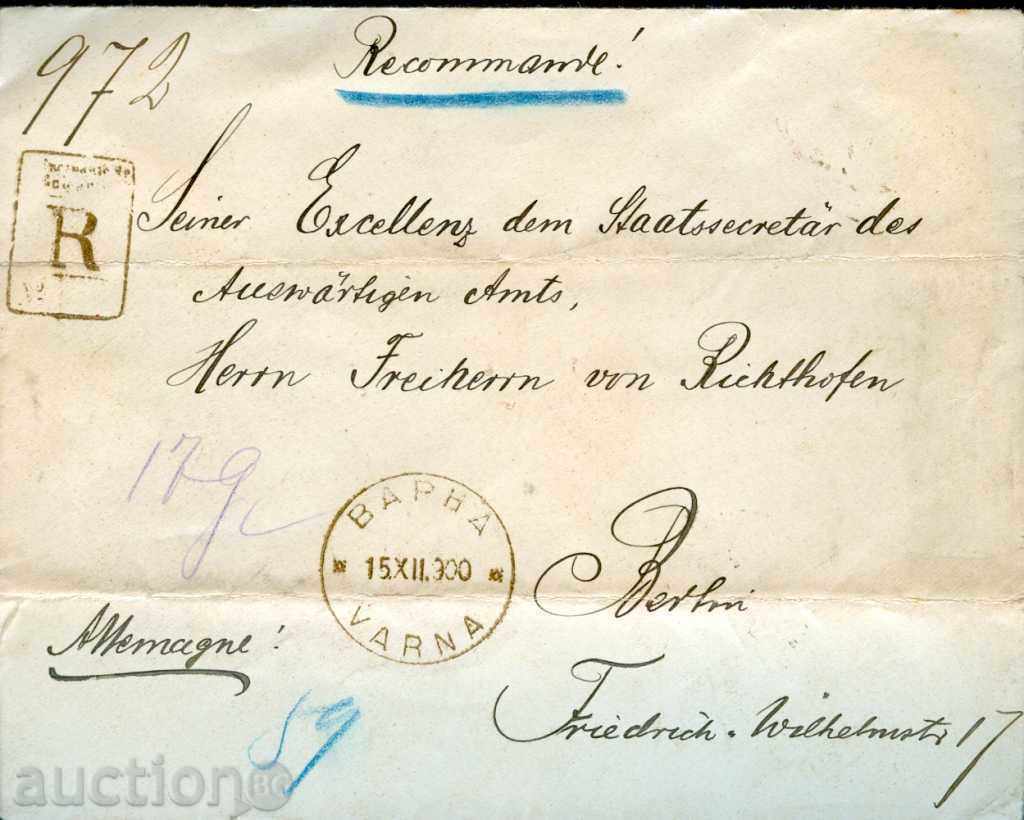 972
Recommandé!
R
Seiner Excellenz dem Staatssecretär des
Auswärtigen Amts,
Herrn Freiherrn von Richthofen
17g
ВАРНА
15.XII.900
VARNA
Berlin
Allemagne!
59
Friedrich-Wilhelmstr 17
auction BG